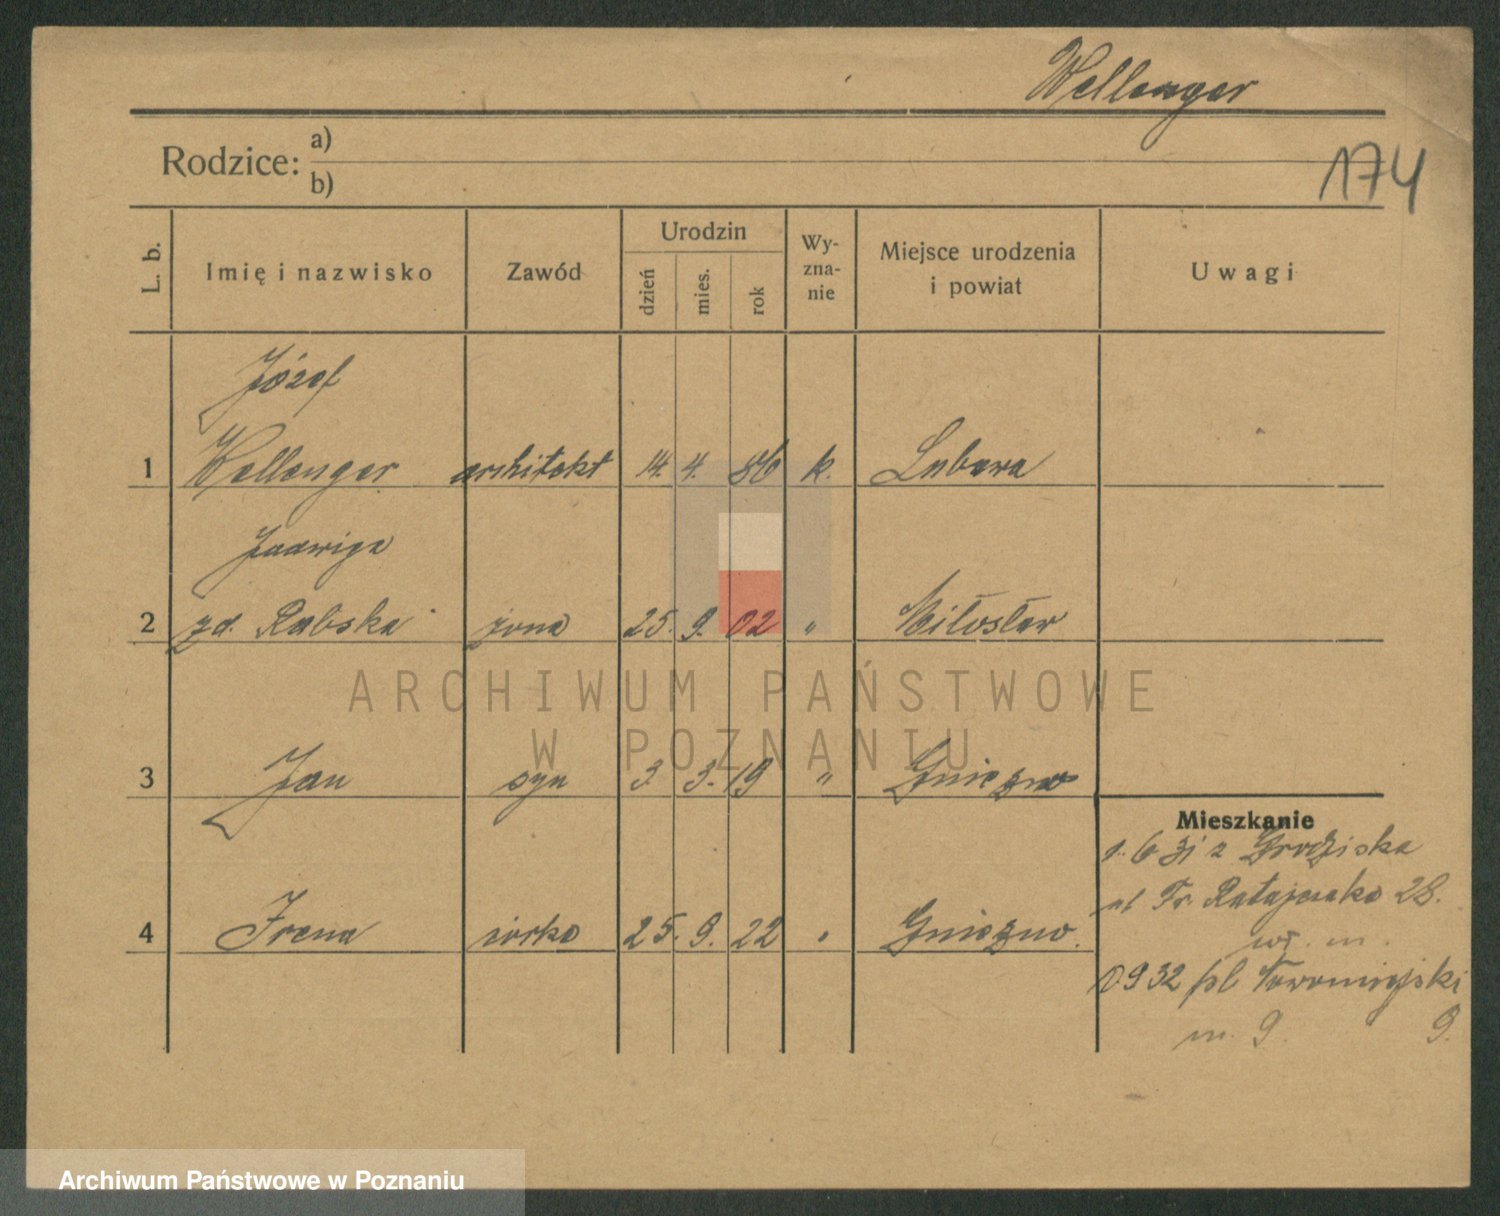 Wellenger
174
Rodzice: a)
b)
L. b. Imię i nazwisko Zawód Urodzin dzień mies. rok Wy-zna-nie Miejsce urodzenia i powiat Uwagi
Józef
1 Wellenger architekt 14. 4. 86 k. Lubawa
Jadwiga
2 zd. Rabska żona 25. 9. 02 " Miłosław
3 Jan syn 3. 3. 19 " Gniezno
Mieszkanie
1. 6 31 z Grodziska
ul Fr. Ratajczaka 28.
4 Irena córka 25. 9. 22 " Gniezno.
m.
932 pl Nowomiejski
m. 9 9.
ARCHIWUM PAŃSTWOWE
W POZNANIU
Archiwum Państwowe w Poznaniu